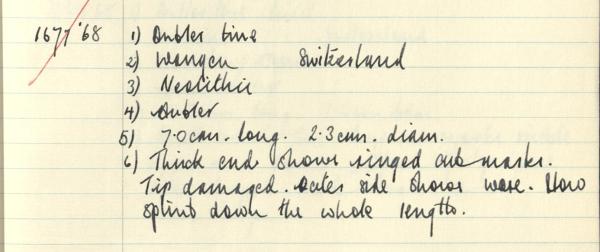 1677'68 1) Antler tine
2) Wangen Switzerland
3) Neolithic
4) Antler
5) 7.0cm. long. 2.3cm. diam.
6) Thick end shows ringed cut marks.
Tip damaged. Outer side shows wear. Now
splint down the whole length.